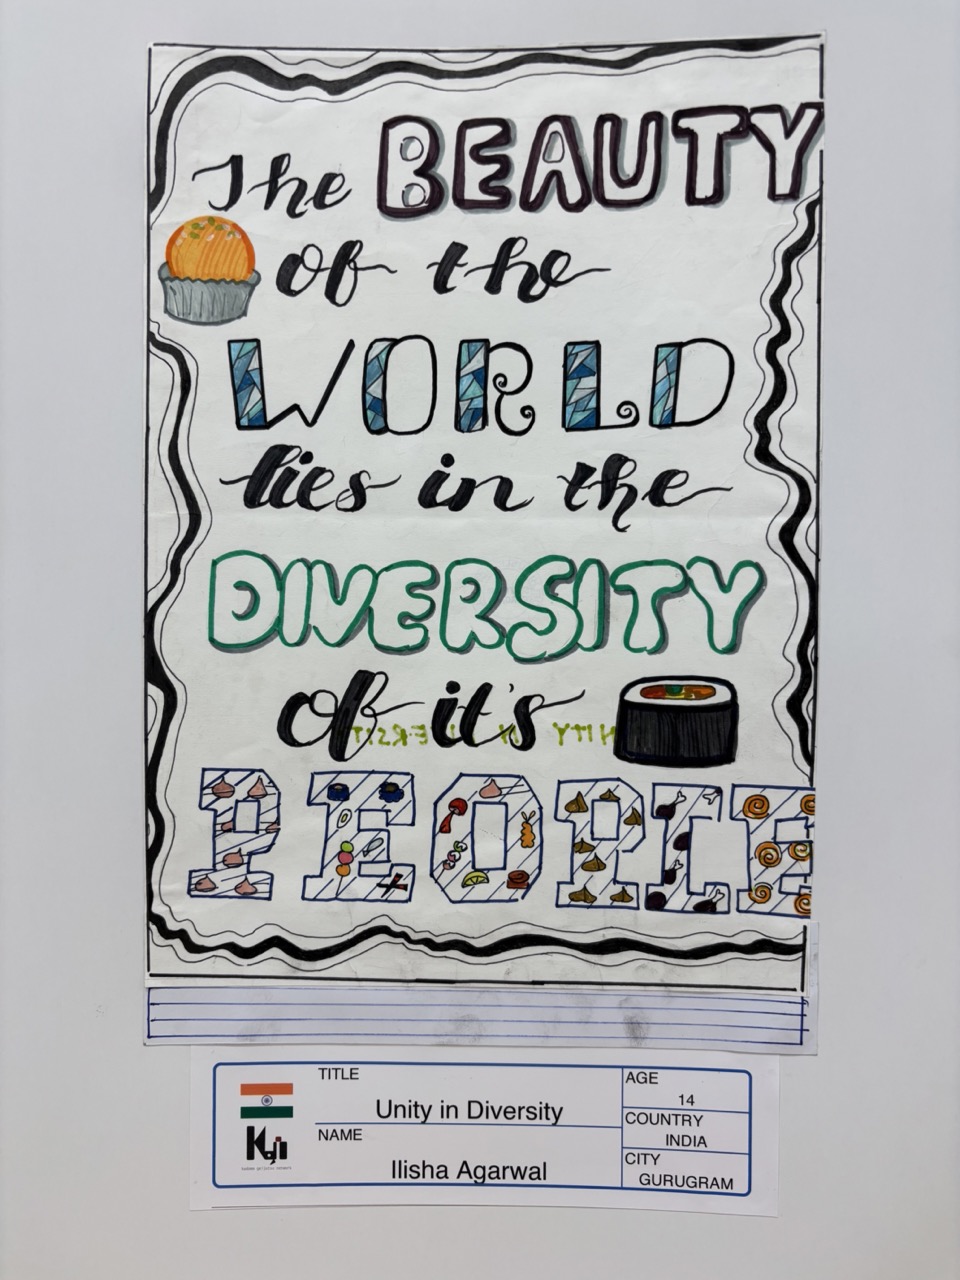 The BEAUTY
of the
WORLD
lies in the
DIVERSITY
of it's
PEOPLE
TITLE
Unity in Diversity
NAME
Ilisha Agarwal
AGE
14
COUNTRY
INDIA
CITY
GURUGRAM